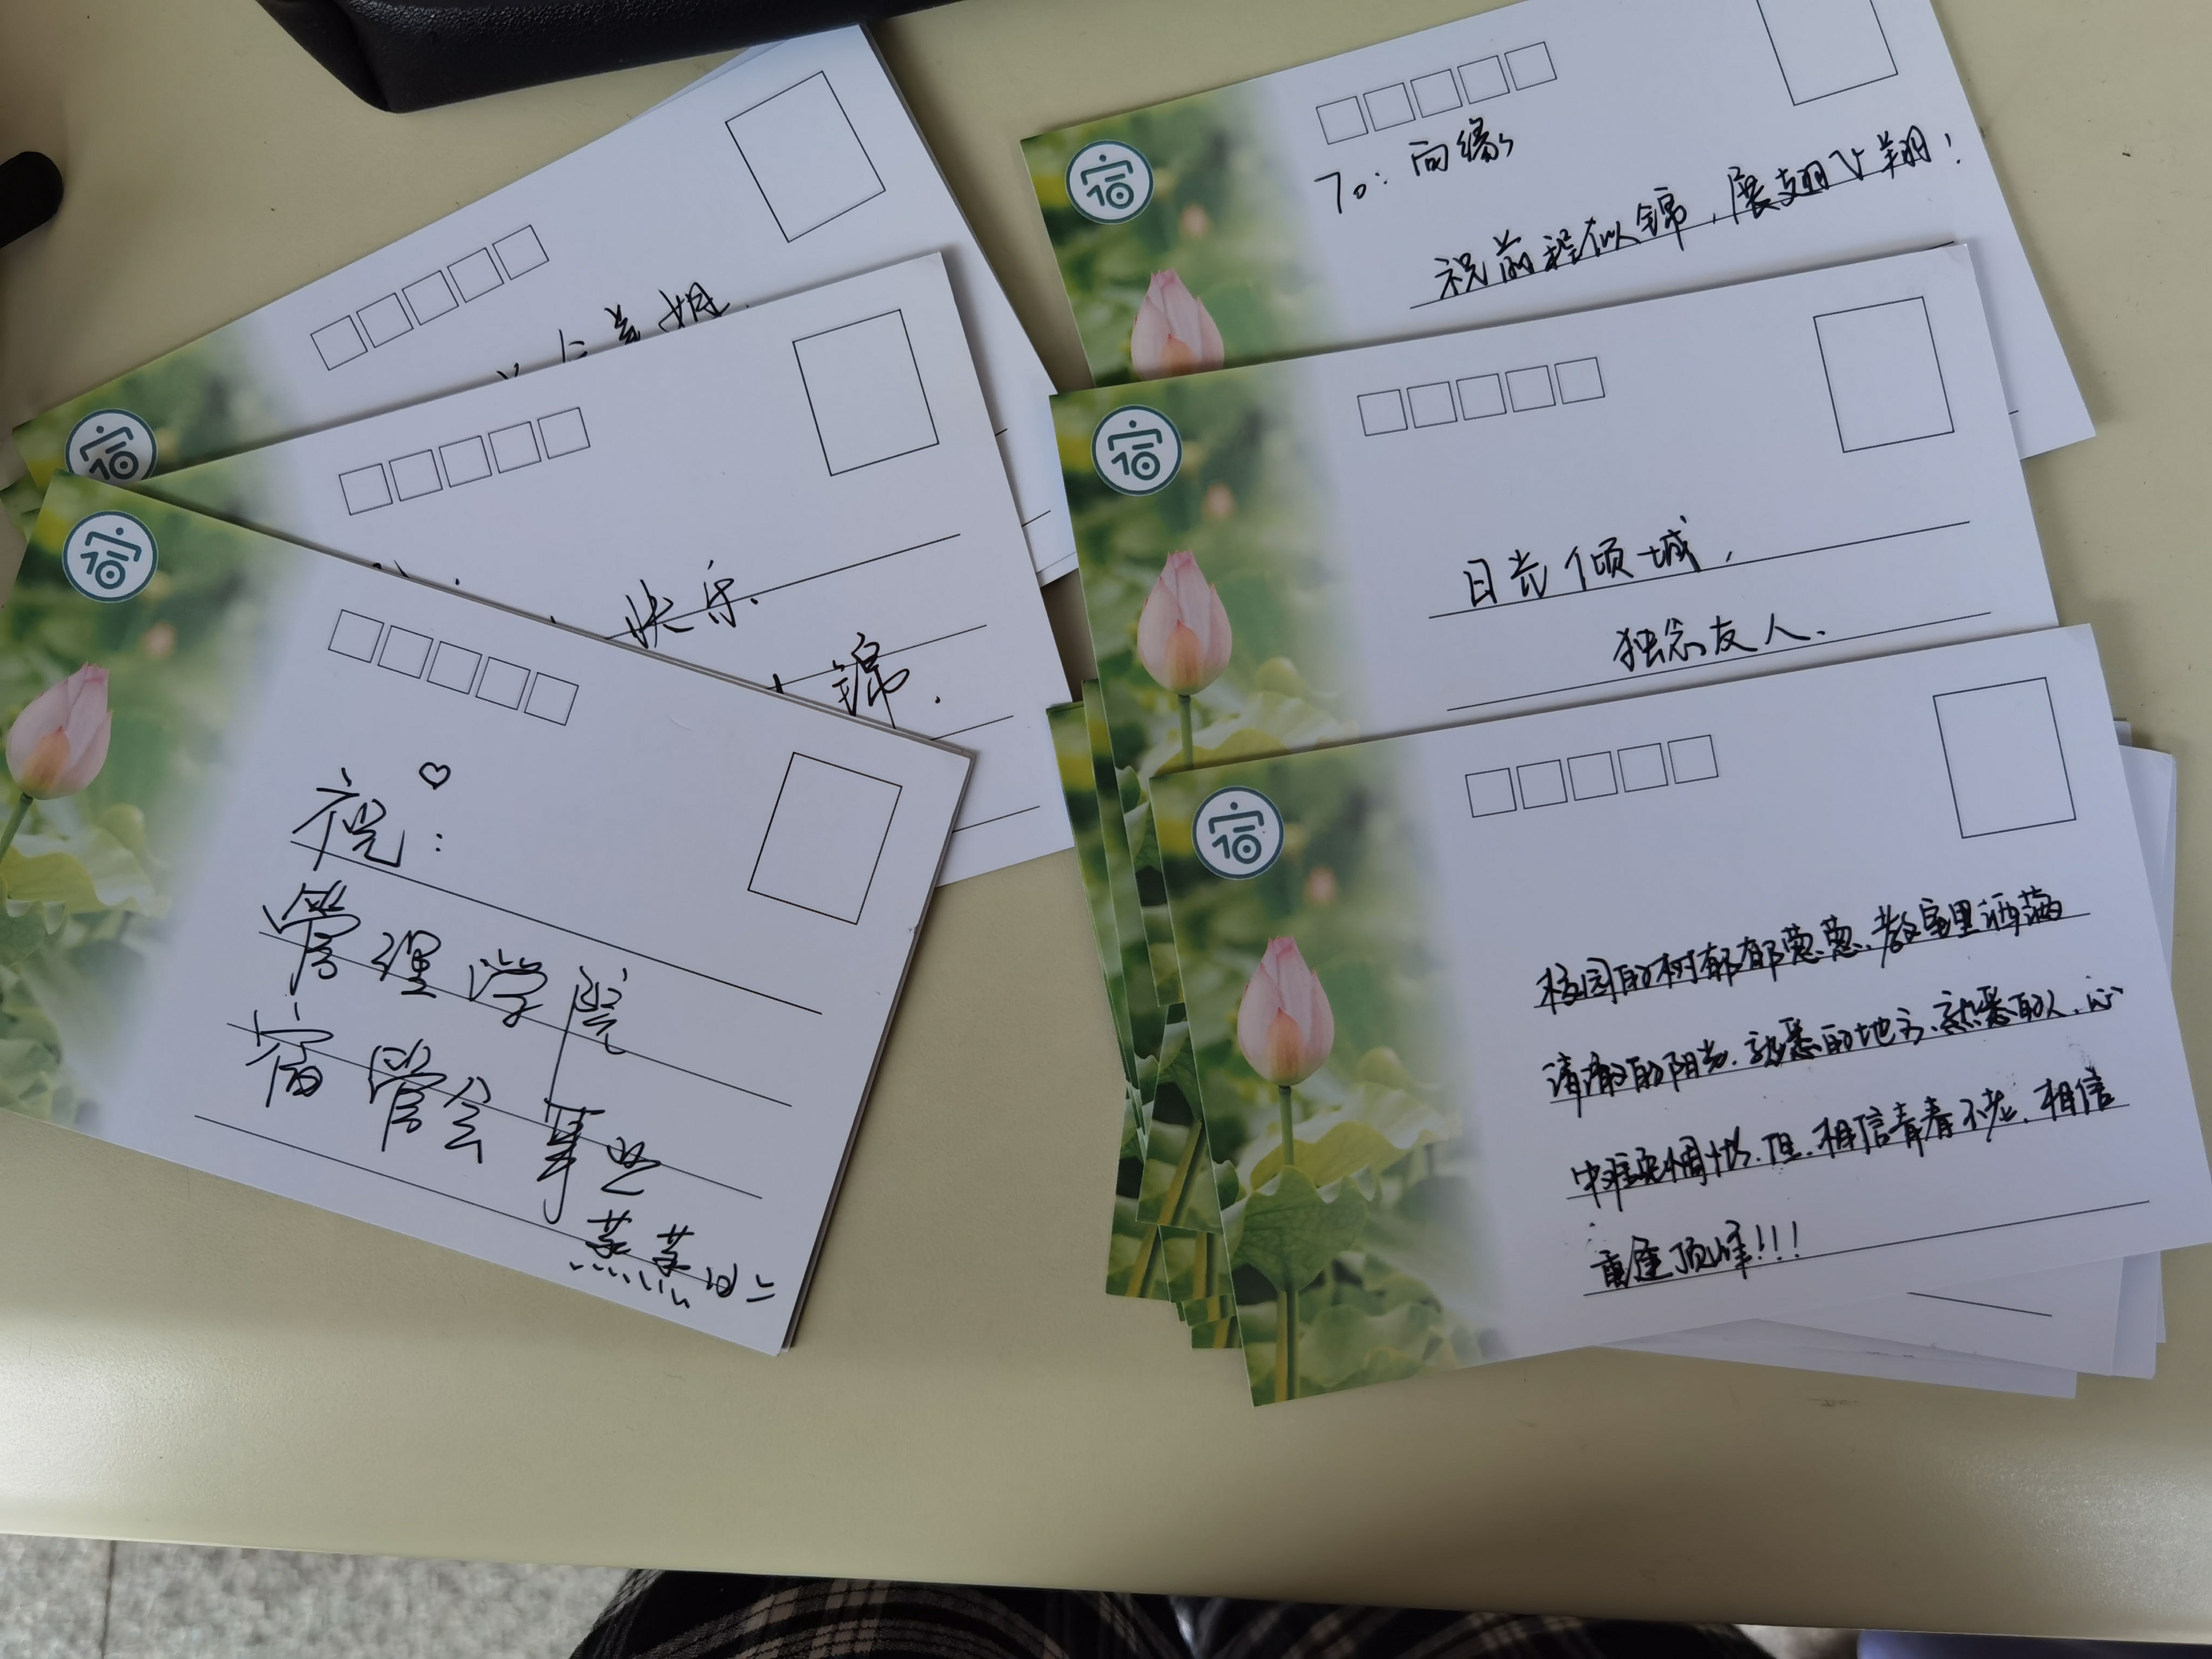 快乐.
锦.
祝:
管理学院
宿管会事业
蒸蒸日上
To: 向缘
祝前程似锦,展翅飞翔!
日光倾城,
独念友人.
校园的树郁郁葱葱.教室里洒满
清澈的阳光.熟悉的地方.熟悉的人.心
中难免惆怅.但.相信青春不老.相信
重逢顶峰!!!